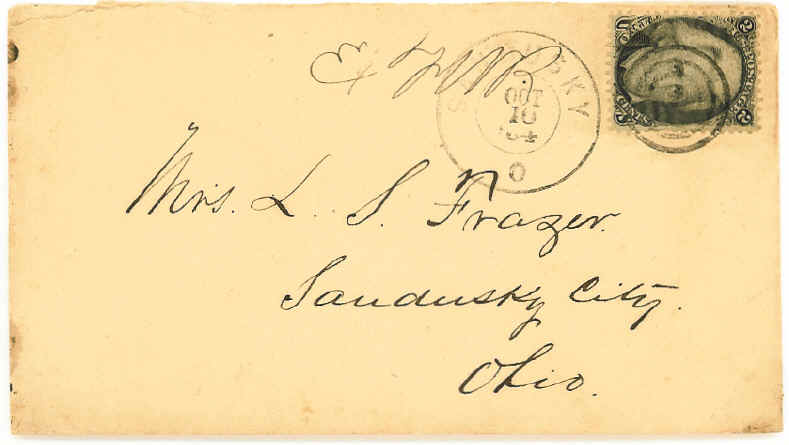 SANDUSKY
OCT
10
'64
O
Mrs. L. S. Frazer.
Sandusky City.
Ohio.